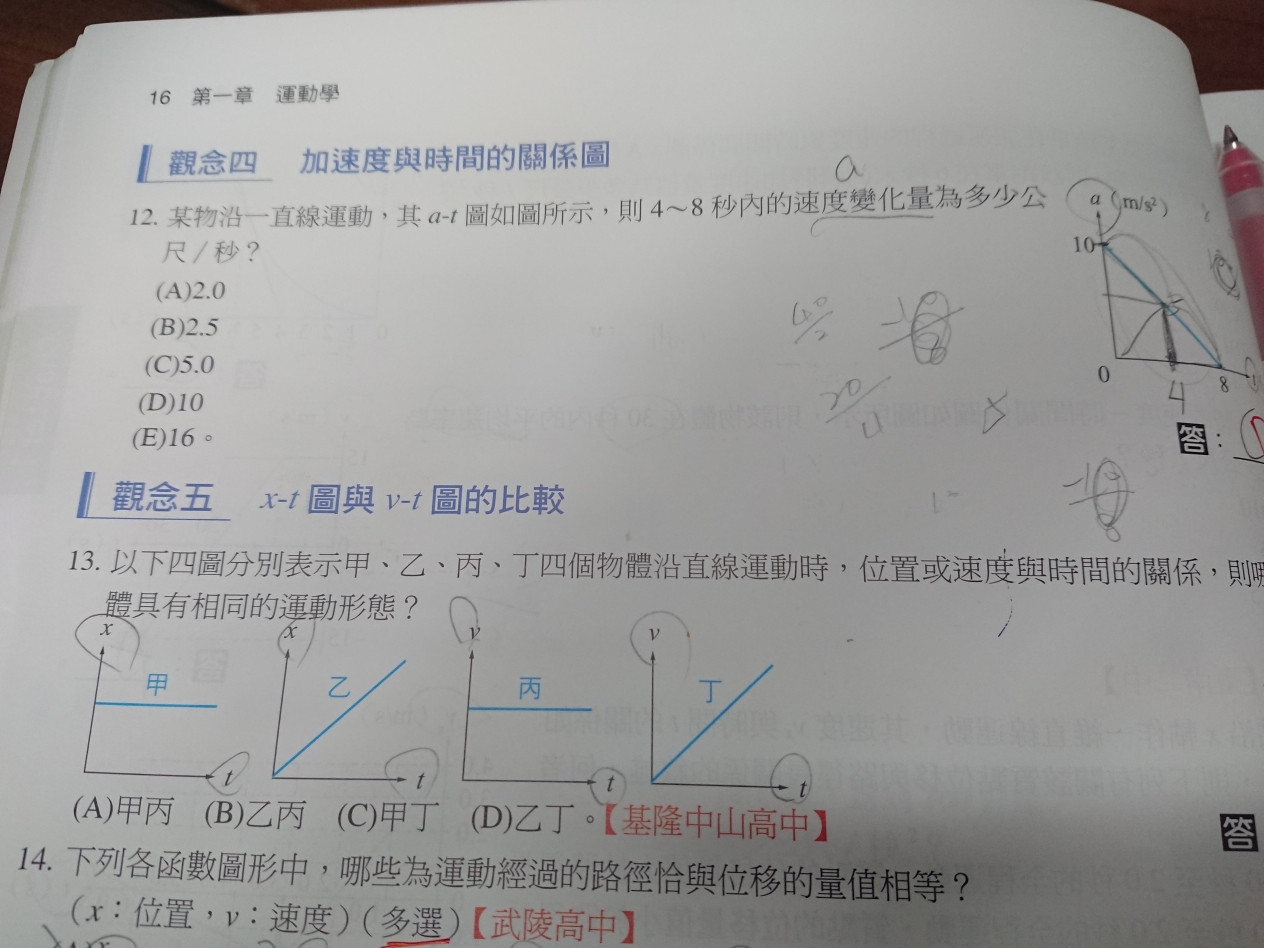 16 第一章 運動學
觀念四 加速度與時間的關係圖
a
12. 某物沿一直線運動，其 a-t 圖如圖所示，則 4～8 秒內的速度變化量為多少公
尺／秒？
(A)2.0
(B)2.5
(C)5.0
(D)10
(E)16。
a (m/s²)
10
0
8
4
20
答：
觀念五 x-t 圖與 v-t 圖的比較
13. 以下四圖分別表示甲、乙、丙、丁四個物體沿直線運動時，位置或速度與時間的關係，則
體具有相同的運動形態？
x 甲 t
x 乙 t
v 丙 t
v 丁 t
(A)甲丙 (B)乙丙 (C)甲丁 (D)乙丁。【基隆中山高中】
答
14. 下列各函數圖形中，哪些為運動經過的路徑恰與位移的量值相等？
（x：位置，v：速度）（多選）【武陵高中】